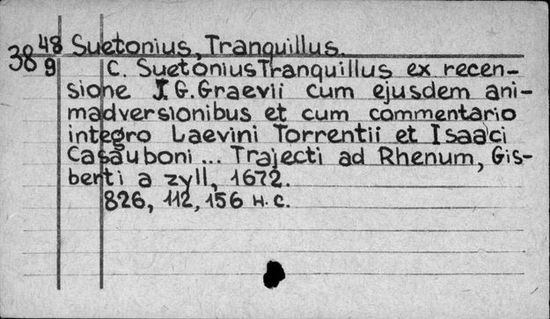 48 Suetonius, Tranquillus.
38
9 C. Suetonius Tranquillus ex recen-
sione J. G. Graevii cum ejusdem ani-
madversionibus et cum commentario
integro Laevini Torrentii et Isaaci
Casauboni ... Trajecti ad Rhenum, Gis-
berti a zyll, 1672.
826, 112, 156 н. с.